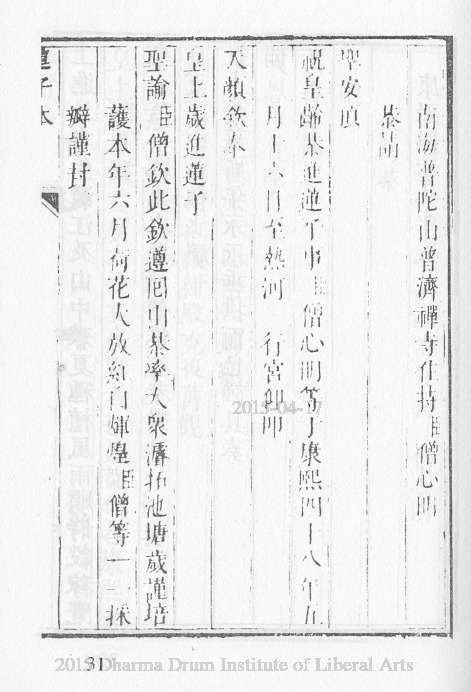 南海普陀山普濟禪寺住持臣僧心明
恭請
聖安慎
祝皇齡恭進蓮子事臣僧心明等于康熙四十八年五
月十六日至熱河 行宮卸叩
天顏欽奉
皇上歲進蓮子
聖諭臣僧欽此欽遵囘山恭率大衆濬拓池塘歲謹培
護本年六月荷花大放紅白輝煌臣僧等一一採
瓣謹封
蓮子本
31
2015-04-17
2015 Dharma Drum Institute of Liberal Arts